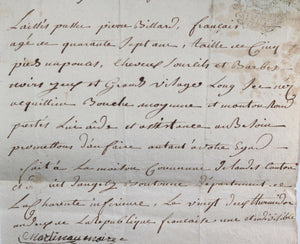 Laissés passer pierre Billard, français
agé de quarante sept ans, taille de Cinq
pieds un pouces, Cheveux Sourcils et Barbe
noirs yeux et Grand visage Long Sec né
aquillien Bouche moyenne et menton Rond
prettés Lui aide et assistance au Besoin
promettons d'en faire autant à votre
fait à la maison Commune des Landes Canton
de st jean d'angely Boutonne département de
La Charente inférieure, La vingt de
an deux de La République française une et indivisible
Martineau maire